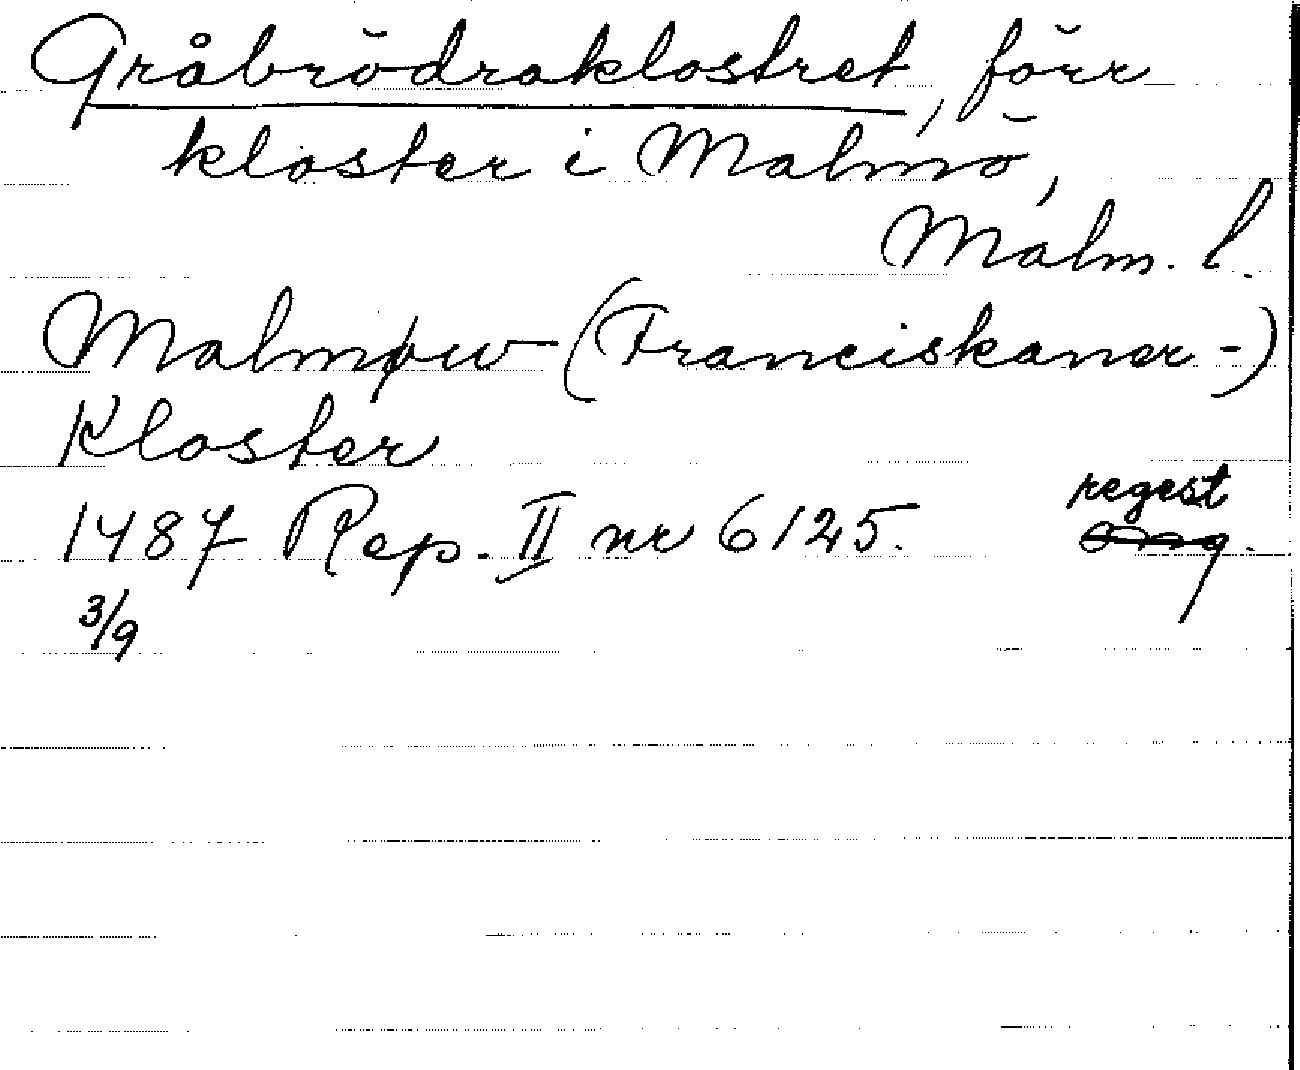 Gråbrödraklostret, förr
kloster i Malmö,
Malm. l.
Malmøw (Franciskaner-)
Kloster
1487 Rep. II nr 6125. regest
3/9